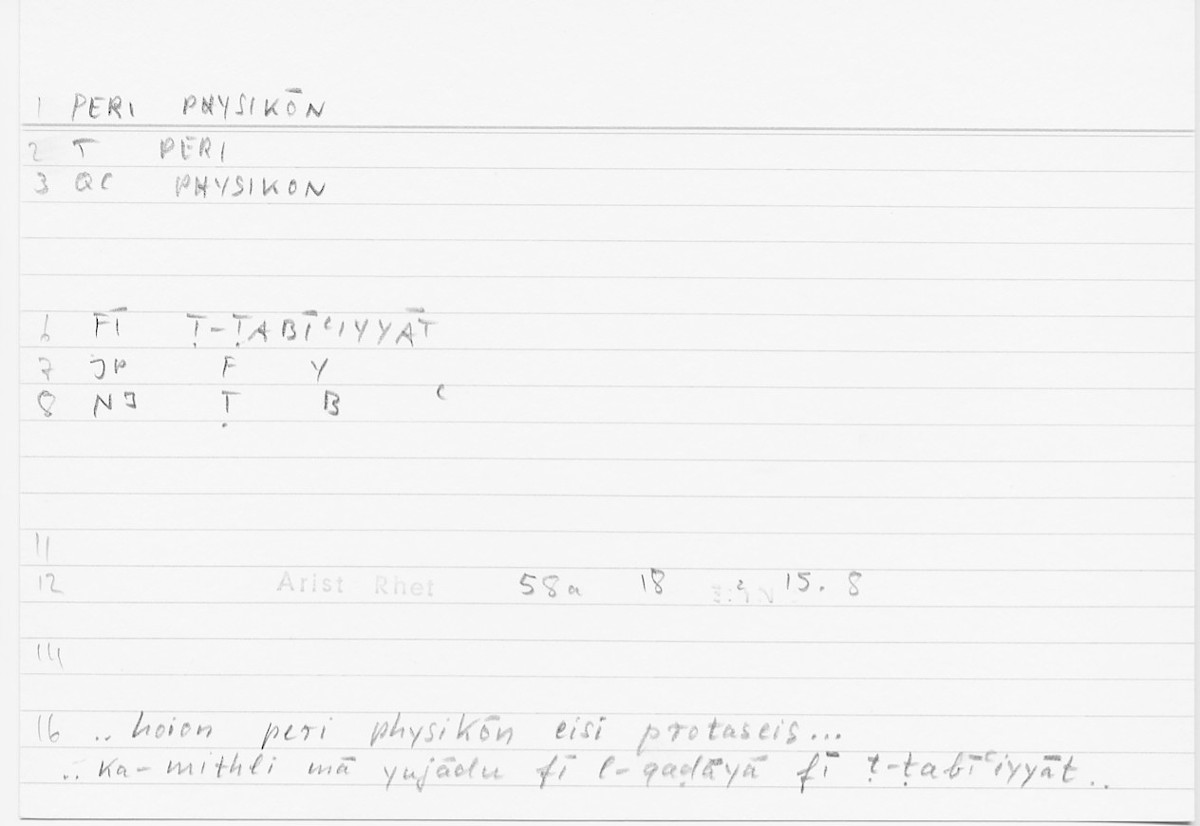 1 PERI PHYSIKŌN
2 T PERI
3 QC PHYSIKON
6 FĪ Ṭ-ṬABĪʿIYYĀT
7 JP F Y
8 NJ Ṭ B ʿ
11
12 Arist Rhet 58a 18 15. 8
14
16 .. hoion peri physikōn eisi protaseis...
.. ka-mithli mā yujādu fī l-qaḍāyā fī ṭ-ṭabīʿiyyāt ..